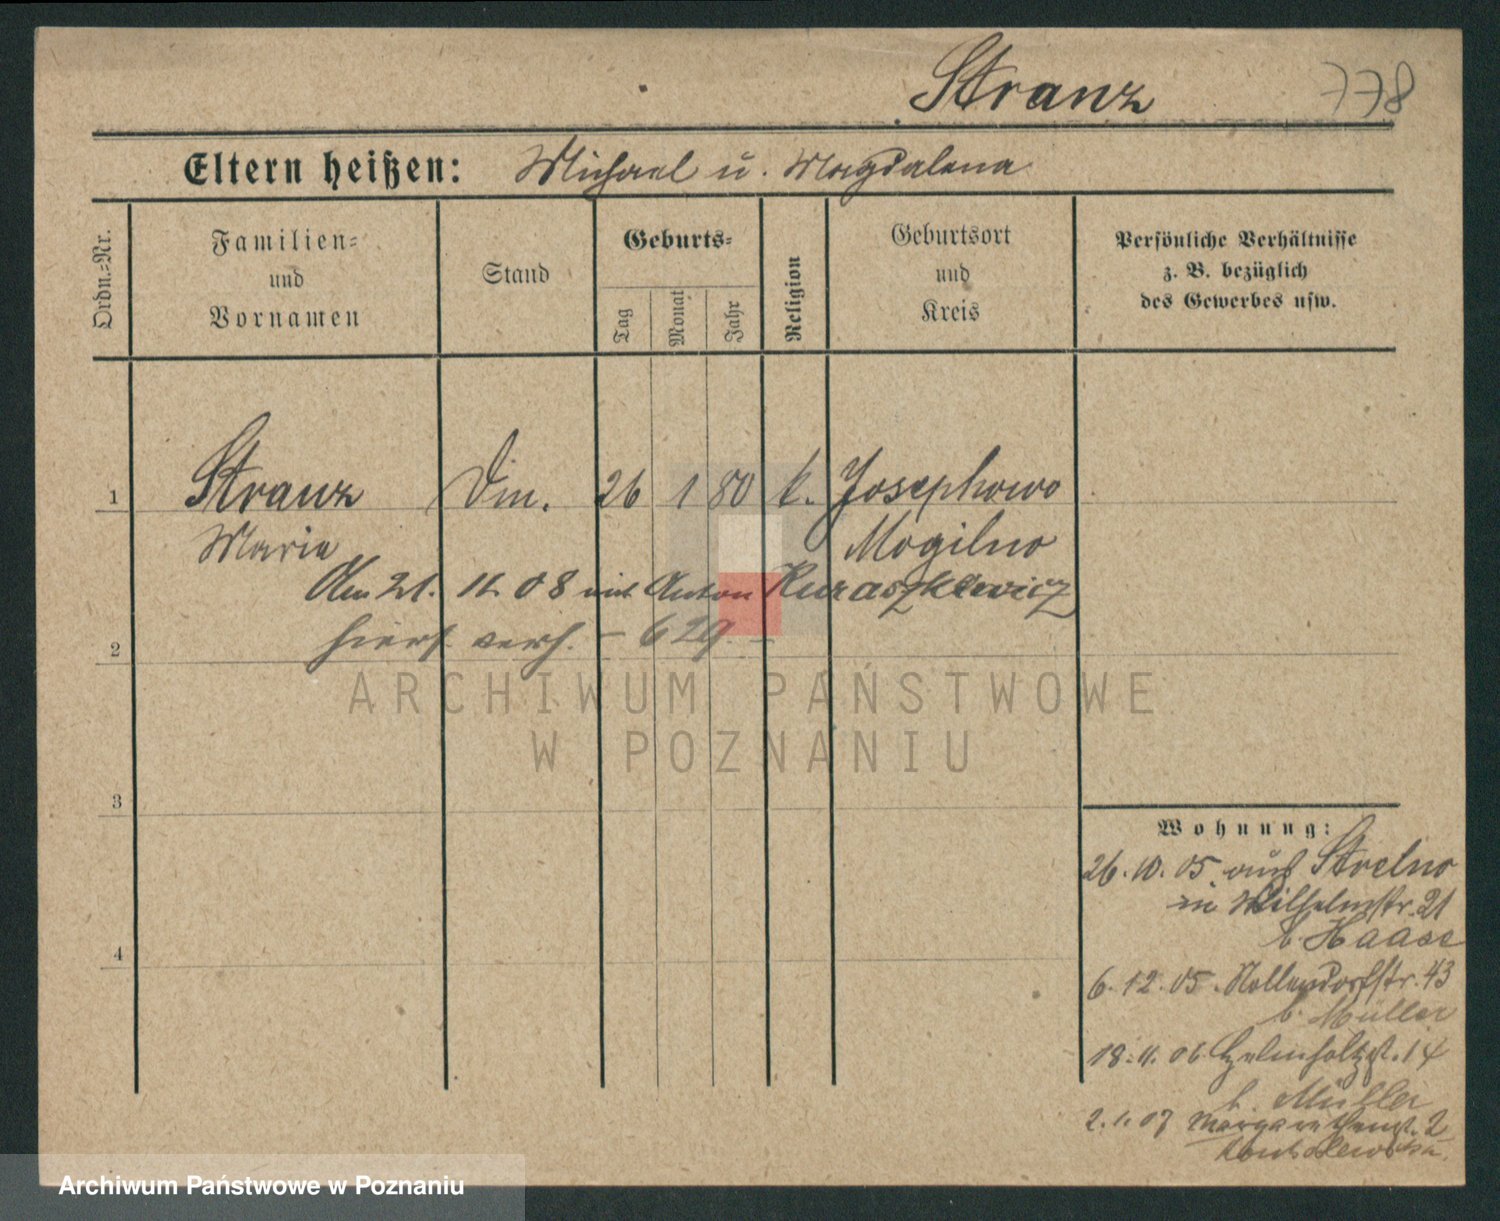 Stranz 778
Eltern heißen: Michael u. Magdalena
Ordn.=Nr.
Familien=
und
Vornamen
Stand
Geburts=
Tag
Monat
Jahr
Religion
Geburtsort
und
Kreis
Persönliche Verhältnisse
z. B. bezüglich
des Gewerbes usw.
1 Stranz 26 1 80 k. Josephowo
Marie Mogilno
Am 21. 11. 08 mit Anton Kuraszkiewicz
2 hiers. verh. – 629. –
3
4
Wohnung:
26.10.05 aus Strelno
in Wilhelmstr. 21
b. Haase
6.12.05. Nollendorfstr. 43
b. Müller
18.4.06 Helmholtzst. 14
b. Müller
2.1.07 Margarethenst. 2
ARCHIWUM PAŃSTWOWE
W POZNANIU
Archiwum Państwowe w Poznaniu